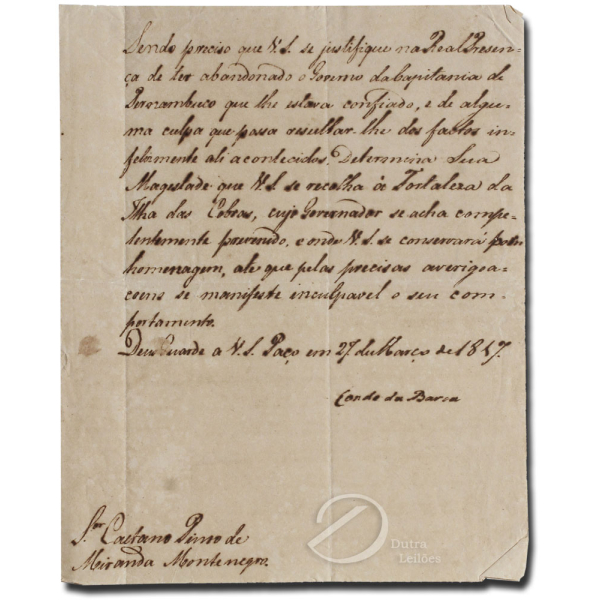 Sendo preciso que V.S. se justifique na Real Presen-
ça de ter abandonado o Governo da Capitania de
Pernambuco que lhe estava confiado, e de algu-
ma culpa que possa resultar-lhe dos factos in-
felizmente ali acontecidos. Determina Sua
Magestade que V.S. se recolha à Fortaleza da
Ilha das Cobras, cujo Governador se acha compe-
tentemente prevenido, e onde V.S. se conservará por
homenagem, até que pelas precisas averigoa-
coens se manifeste inculpavel o seu com-
portamento.
Deus Guarde a V.S. Paço em 27 de Março de 1817.
Conde da Barca
Snr. Caetano Pinto de
Miranda Montenegro.
Dutra
Leilões